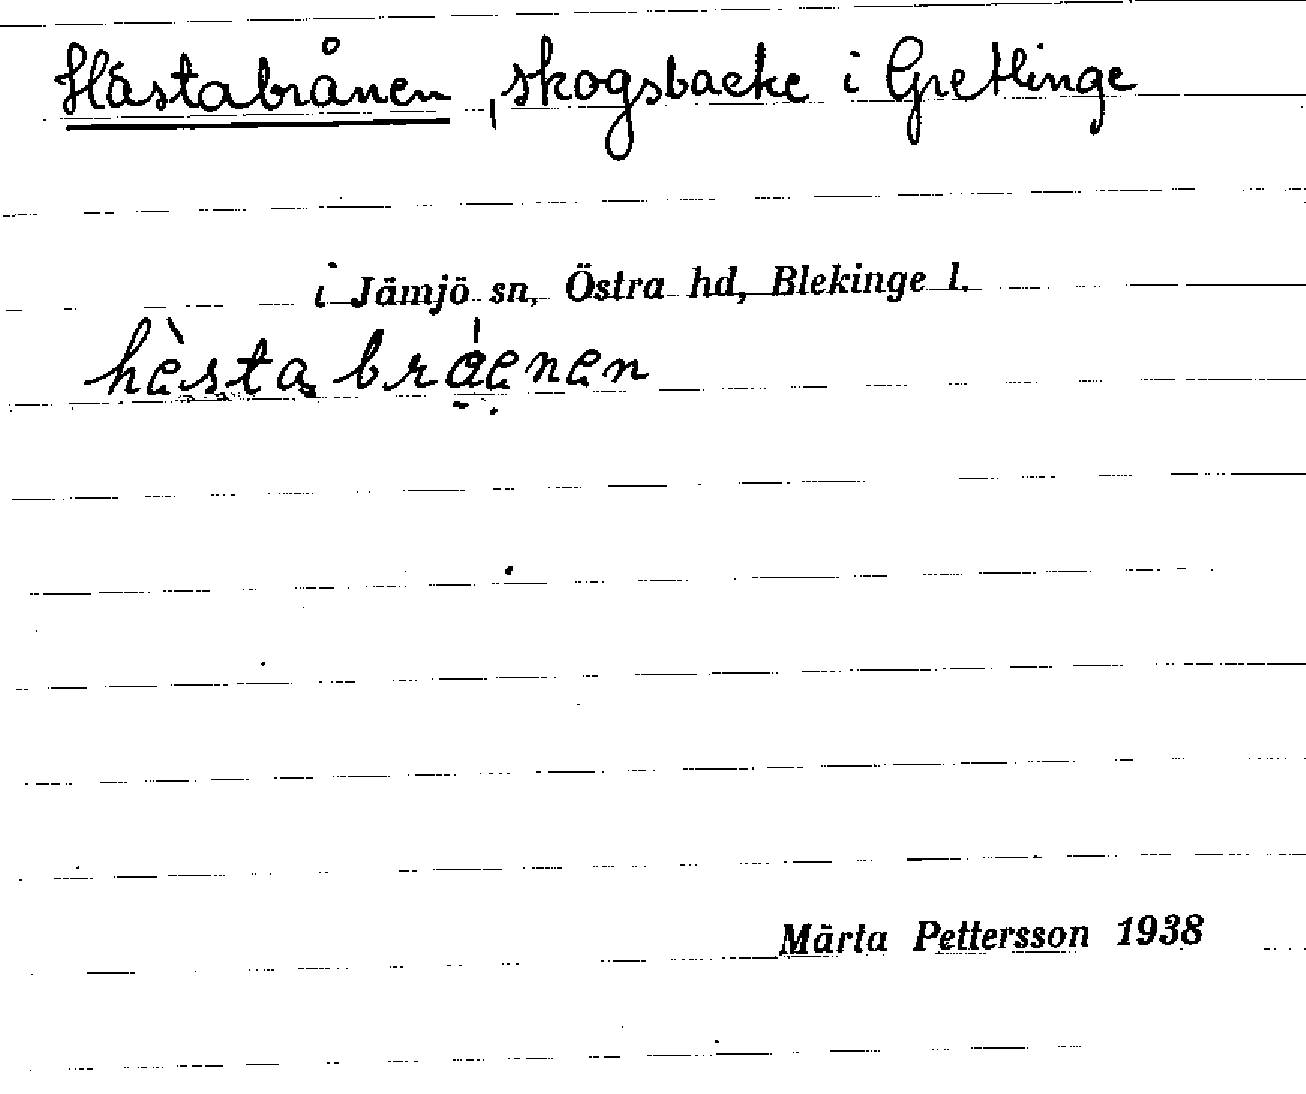 Hästabrånen, skogsbacke i Gretlinge
i Jämjö sn, Östra hd, Blekinge l.
hèsta bráenen
Märta Pettersson 1938